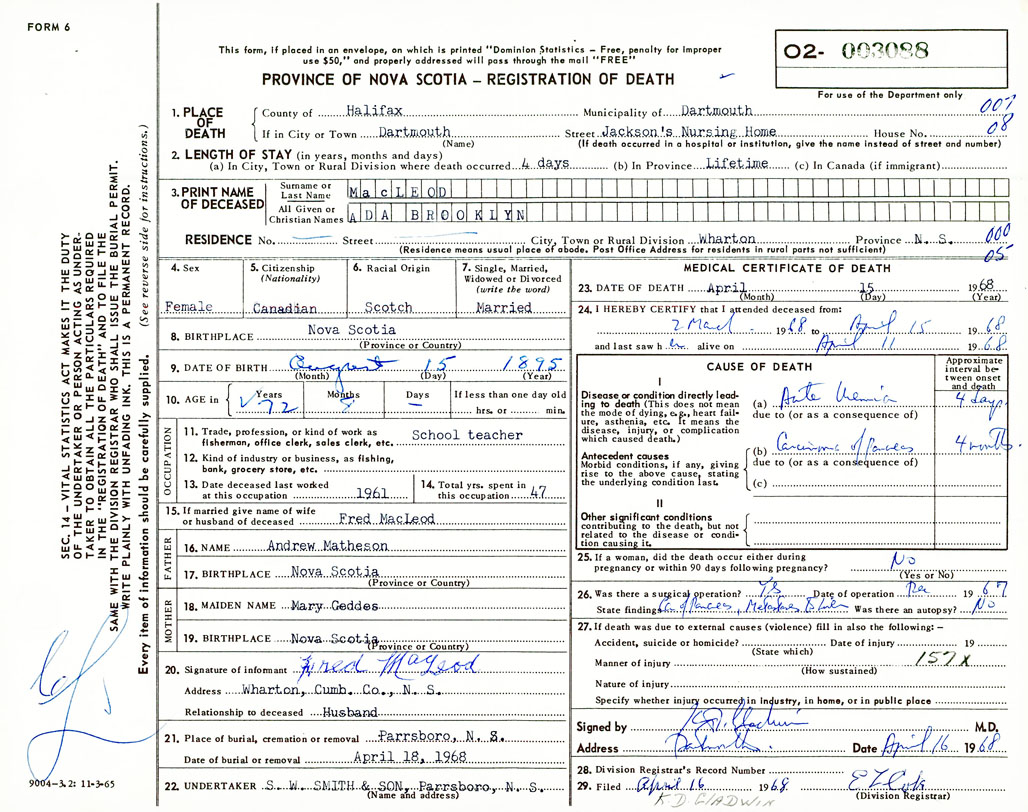 FORM 6
This form, if placed in an envelope, on which is printed "Dominion Statistics – Free, penalty for improper
use $50," and properly addressed will pass through the mail "FREE"
PROVINCE OF NOVA SCOTIA – REGISTRATION OF DEATH
02- 003088
For use of the Department only
SEC. 14 – VITAL STATISTICS ACT MAKES IT THE DUTY
OF THE UNDERTAKER OR PERSON ACTING AS UNDER-
TAKER TO OBTAIN ALL THE PARTICULARS REQUIRED
IN THE "REGISTRATION OF DEATH" AND TO FILE THE
SAME WITH THE DIVISION REGISTRAR WHO SHALL ISSUE THE BURIAL PERMIT.
WRITE PLAINLY WITH UNFADING INK. THIS IS A PERMANENT RECORD.
Every item of information should be carefully supplied. (See reverse side for instructions.)
1. PLACE OF DEATH
County of Halifax Municipality of Dartmouth 007
If in City or Town Dartmouth Street Jackson's Nursing Home House No. 08
(Name) (If death occurred in a hospital or institution, give the name instead of street and number)
2. LENGTH OF STAY (in years, months and days)
(a) In City, Town or Rural Division where death occurred 4 days (b) In Province Lifetime (c) In Canada (if immigrant)
3. PRINT NAME OF DECEASED
Surname or Last Name MacLEOD
All Given or Christian Names ADA BROOKLYN
RESIDENCE No. Street City, Town or Rural Division Wharton Province N. S. 000
(Residence means usual place of abode. Post Office Address for residents in rural parts not sufficient) 05
4. Sex
Female
5. Citizenship
(Nationality)
Canadian
6. Racial Origin
Scotch
7. Single, Married,
Widowed or Divorced
(write the word)
Married
8. BIRTHPLACE Nova Scotia
(Province or Country)
9. DATE OF BIRTH August 15 1895
(Month) (Day) (Year)
10. AGE in
Years 72
Months 8
Days –
If less than one day old
hrs. or min.
OCCUPATION
11. Trade, profession, or kind of work as
fisherman, office clerk, sales clerk, etc. School teacher
12. Kind of industry or business, as fishing,
bank, grocery store, etc.
13. Date deceased last worked
at this occupation 1961
14. Total yrs. spent in
this occupation 47
15. If married give name of wife
or husband of deceased Fred MacLeod
FATHER
16. NAME Andrew Matheson
17. BIRTHPLACE Nova Scotia
(Province or Country)
MOTHER
18. MAIDEN NAME Mary Geddes
19. BIRTHPLACE Nova Scotia
(Province or Country)
20. Signature of informant Fred MacLeod
Address Wharton, Cumb. Co., N. S.
Relationship to deceased Husband
21. Place of burial, cremation or removal Parrsboro, N. S.
Date of burial or removal April 18, 1968
22. UNDERTAKER S. W. SMITH & SON, Parrsboro, N. S.
(Name and address)
9004-3.2: 11-3-65
MEDICAL CERTIFICATE OF DEATH
23. DATE OF DEATH April 15 1968
(Month) (Day) (Year)
24. I HEREBY CERTIFY that I attended deceased from:
2 March 1968 to April 15 1968
and last saw her alive on April 11 1968
CAUSE OF DEATH
Approximate
interval be-
tween onset
and death
I
Disease or condition directly lead-
ing to death (This does not mean
the mode of dying, e.g., heart fail-
ure, asthenia, etc. It means the
disease, injury, or complication
which caused death.)
(a) Acute Uremia 4 days
due to (or as a consequence of)
Antecedent causes
Morbid conditions, if any, giving
rise to the above cause, stating
the underlying condition last.
(b) Carcinoma of Pancreas 4 months
due to (or as a consequence of)
(c)
II
Other significant conditions
contributing to the death, but not
related to the disease or condi-
tion causing it.
25. If a woman, did the death occur either during
pregnancy or within 90 days following pregnancy? No
(Yes or No)
26. Was there a surgical operation? Yes Date of operation Dec 1967
State findings Ca of Pancreas, Metastases to Liver Was there an autopsy? No
27. If death was due to external causes (violence) fill in also the following: –
Accident, suicide or homicide? Date of injury 19
(State which)
Manner of injury 157X
(How sustained)
Nature of injury
Specify whether injury occurred in industry, in home, or in public place
Signed by K.D. Gladwin M.D.
Address Dartmouth Date April 16 1968
28. Division Registrar's Record Number
29. Filed April 16 1968
(Division Registrar)
K D GLADWIN